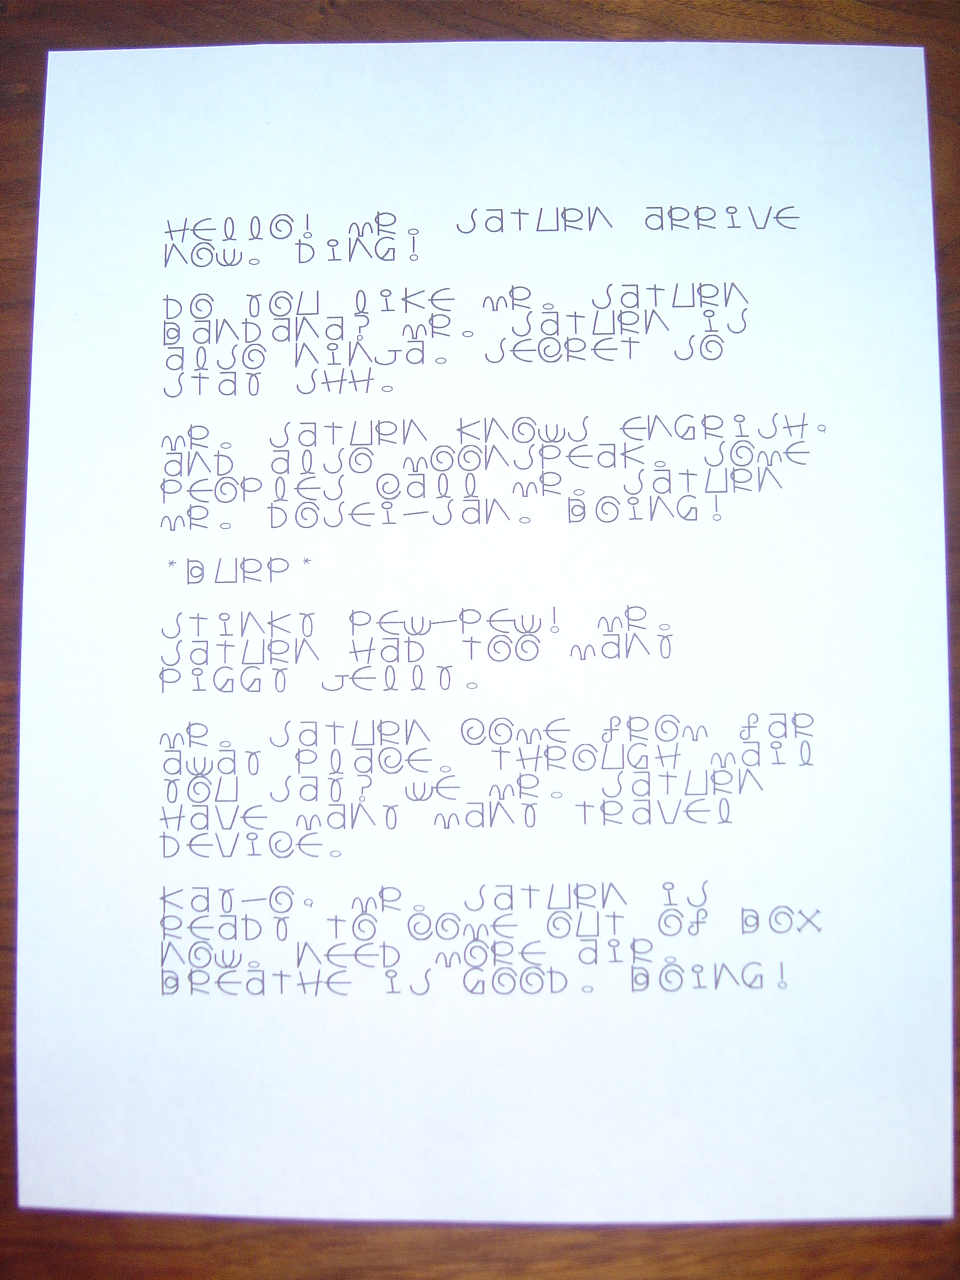 HELLO! MR. SATURN ARRIVE
NOW. DING!
DO YOU LIKE MR. SATURN
BANDANA? MR. SATURN IS
ALSO NINJA. SECRET SO
STAY SHH.
MR. SATURN KNOWS ENGRISH.
AND ALSO MOONSPEAK. SOME
PEOPLES CALL MR. SATURN
MR. DOSEI-SAN. BOING!
*BURP*
STINKY PEW-PEW! MR.
SATURN HAD TOO MANY
PIGGY JELLY.
MR. SATURN COME FROM FAR
AWAY PLACE. THROUGH MAIL
YOU SAY? WE MR. SATURN
HAVE MANY MANY TRAVEL
DEVICE.
KAY-O. MR. SATURN IS
READY TO COME OUT OF BOX
NOW. NEED MORE AIR.
BREATHE IS GOOD. BOING!